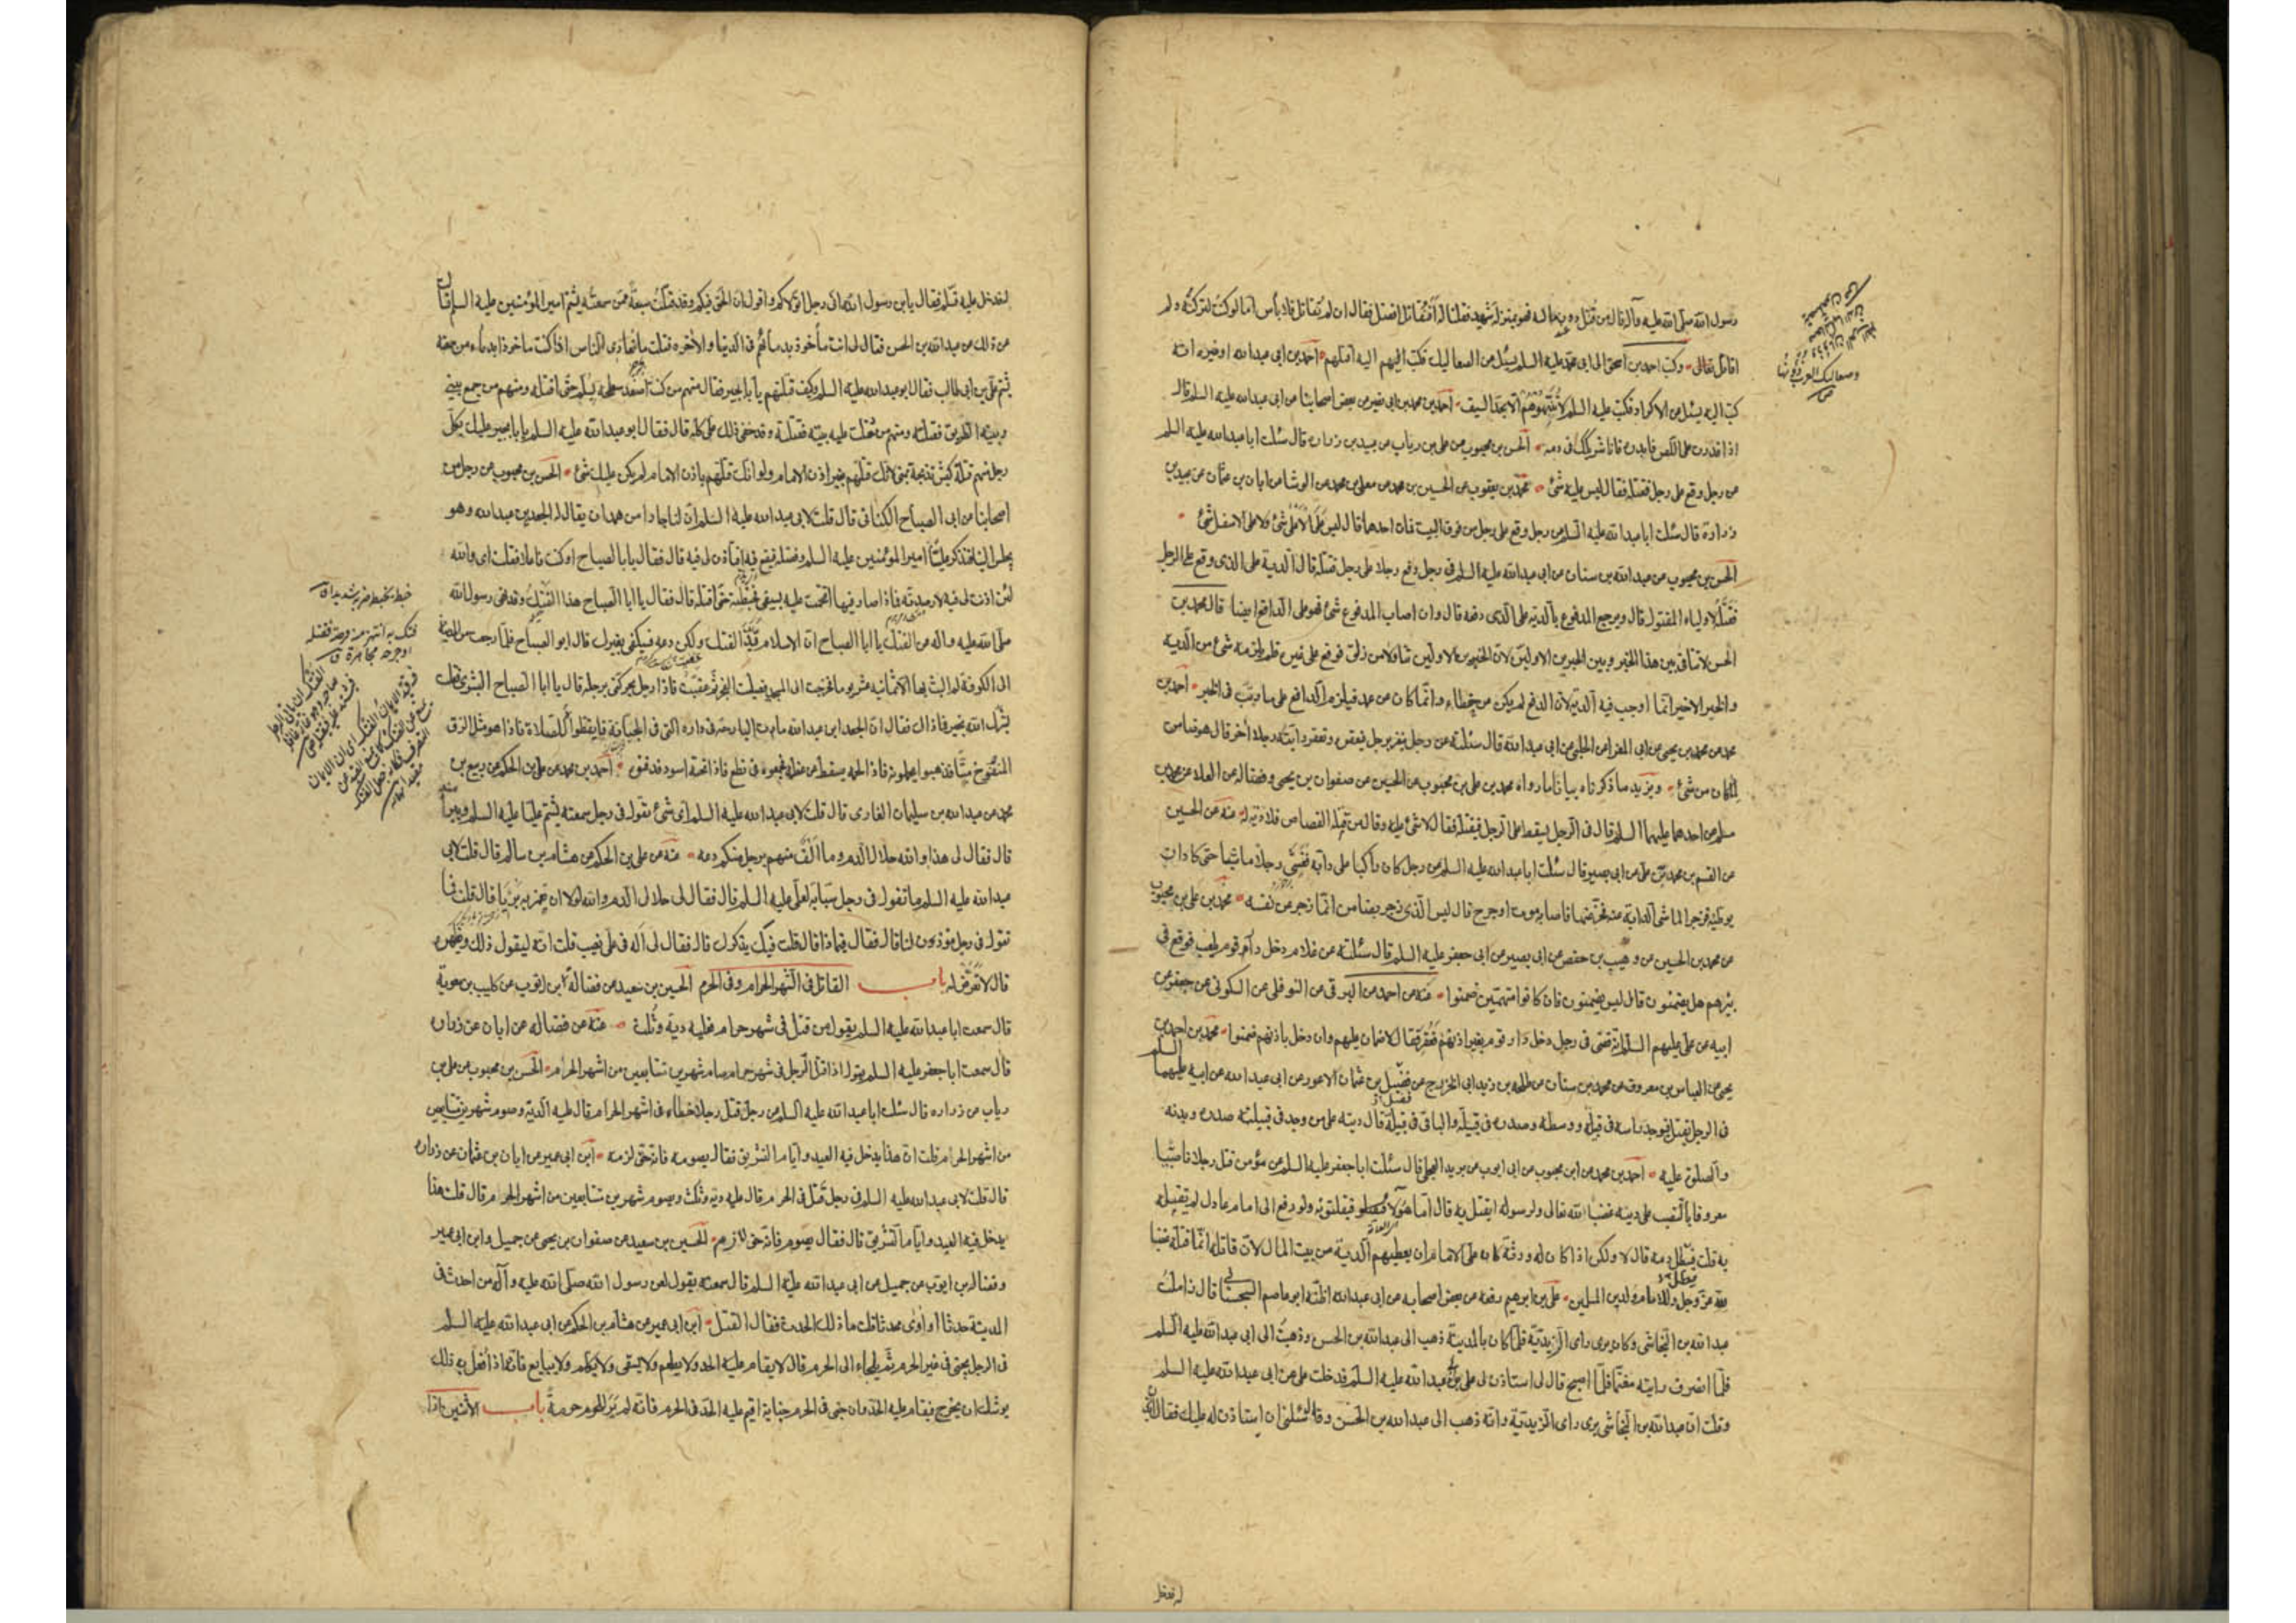 رسول الله صلى الله عليه وآله قال من قتل دون ماله فهو بمنزلة شهيد فقلنا له أفنقاتل أفضل فقال ان لم تقاتل فلا بأس أما لو كنت لتركته ولم
اقاتل تعالى وكتب احمد بن اسحق الى ابى محمد عليه السلم يسئل من الصعاليك فكتب اليهم اليه اقتلهم احمد بن ابى عبد الله او غيره انه
كتب اليه يسئل من الاكراد فكتب عليه السلم لا تنبهوهم الا بحد السيف احمد بن محمد بن ابى نصر من بعض اصحابنا من ابى عبد الله عليه السلم قال
اذا قدرت على اللص فابدره فانا شريكك فى دمه الحسن بن محبوب من على بن رياب من عبيد بن زراره قال سئلت ابا عبد الله عليه السلم
من رجل وقع على رجل فقتله فقال ليس عليه شئ محمد بن يعقوب عن الحسين بن محمد من معلى بن محمد من الوشا من ابان بن عثمان عن عبيد بن
زرارة قال سئلت ابا عبد الله عليه السلم من رجل وقع على رجل من فوق البيت فمات احدهما قال ليس على الاعلى شئ ولا على الاسفل شئ
الحسن بن محبوب من عبد الله بن سنان من ابى عبد الله عليه السلم فى رجل دفع رجلا على رجل فقتله قال الدية على الذى وقع على الرجل
فقتله لاولياء المقتول قال ويرجع المدفوع بالدية على الذى دفعه قال وان اصاب المدفوع شئ فهو على الدافع ايضا قال محمد بن
الحسن لا تنافى بين هذا الخبر وبين الخبرين الاولين لان الخبرين الاولين تناولا من زلق فوقع على غيره فلم يلزمه شئ من الدية
والخبر الاخير انما اوجب فيه الدية لان الدفع لم يكن من خطاء وانما كان عن عمد فيلزم الدافع على ما رتب فى الخبر احمد بن
محمد من محمد بن يحيى من ابى المعزا من الحلبى من ابى عبد الله قال سئلته عن رجل ينفر برجل فيعقره وتعقر دابته رجلا آخر قال هو ضامن
لما كان من شئ ويزيد ما ذكرناه بيانا ما رواه محمد بن على بن محبوب عن الحسين من صفوان بن يحيى وفضاله من العلا عن محمد بن
مسلم من احدهما عليهما السلم قال فى الرجل يسقط على الرجل فيقتله فقال لا شئ عليه وقال من قتله القصاص فلا دية له عنه عن الحسين
من القسم بن محمد عن على من ابى بصير قال سئلت ابا عبد الله عليه السلم من رجل كان راكبا على دابة فغشى رجلا ماشيا حتى كاد ان
يوطئه فزجر الماشى الدابة عنه فخر عنها فاصابه موت او جرح قال ليس الذى زجر بضامن انما زجر عن نفسه محمد بن على بن محبوب
من محمد بن الحسين من وهيب بن حفص من ابى بصير من ابى جعفر عليه السلم قال سئلته من غلام دخل دار قوم يلعب فوقع فى
بئرهم هل يضمنون قال ليس يضمنون فان كانوا متهمين ضمنوا عنه من احمد من البرقى من النوفلى من السكونى من جعفر من
ابيه عن على عليهم السلم انه قضى فى رجل دخل دار قوم بغير اذنهم فعقر فقال لا ضمان عليهم وان دخل باذنهم ضمنوا محمد بن احمد بن
يحيى من العباس بن معروف عن محمد بن سنان من طلحه بن زيد ابى الخزرج من فضيل بن عثمان الاعور من ابى عبد الله عن ابيه عليهما السلم
فى الرجل يقتل فيوجد راسه فى قبيلة ووسطه وصدره فى قبيلة والباقى فى قبيلة قال ديته على من وجد فى قبيلته صدره وبدنه
والصلوة عليه احمد بن محمد من ابن محبوب من ابى ايوب من بريد العجلى قال سئلت ابا جعفر عليه السلم من مؤمن قتل رجلا ناصبيا
معروفا بالنصب على دينه غضبا لله تعالى ولرسوله ايقتل به قال اما هؤلاء فيقتلونه ولو رفع الى امام عادل لم يقتله
به قلت فيبطل دمه قال لا ولكن اذا كان له ورثة كان على الامام ان يعطيهم الدية من بيت المال لان قاتله انما قتله غضبا
لله عز وجل وللامام ولدين المسلمين على بن ابرهيم رفعه من بعض اصحابه من ابى عبد الله اظنه ابو عاصم السجستانى قال زاملت
عبد الله بن النجاشى وكان يرى راى الزيدية فلما كان بالمدينة ذهب الى عبد الله بن الحسن وذهبت الى ابى عبد الله عليه السلم
فلما انصرف رايته مغتما فلما اصبح قال لى استاذن لى على ابى عبد الله عليه السلم فدخلت على ابى عبد الله عليه السلم
وقلت ان عبد الله بن النجاشى يرى راى الزيدية وانه ذهب الى عبد الله بن الحسن وقد سئلنى ان استاذن له عليك فقال
وصعاليك العرب
لقد دخل عليه فسلم فقال يابن رسول الله انى رجل اتولاكم واقول ان الحق فيكم وقد قتلت سبعة ممن سمعته يشتم امير المؤمنين عليه السلم قال
من ذلك من عبد الله بن الحسن فقال لى انت مأخوذ بدمائهم فى الدنيا والآخره فقلت ما نعادى الناس اذا كنت ماخوذا بدماء من سمعته
يشتم على بن ابى طالب فقال ابو عبد الله عليه السلم وكيف قتلتهم يا ابا بجير فقال منهم من كنت اصعد سطحه بسلم حتى اقتله ومنهم من جمع بينى
وبينه الطريق فقتلته ومنهم من دخلت عليه بيته فقتلته وقد خفى ذلك على كله قال فقال ابو عبد الله عليه السلم يا ابا بجير عليك بكل
رجل منهم قتلته كبش تذبحه بمنى لانك قتلتهم بغير اذن الامام ولو انك قتلتهم باذن الامام لم يكن عليك شئ الحسن بن محبوب من رجل من
اصحابنا من ابى الصباح الكنانى قال قلت لابى عبد الله عليه السلم ان لنا جارا من همدان يقال له الجعد بن عبد الله وهو
يجلس الينا فنذكر عليا امير المؤمنين عليه السلم وفضله فيقع فيه افتأذن لى فيه قال فقال يا ابا الصباح او كنت فاعلا فقلت اى والله
لئن اذنت لى فيه لارصدنه فاذا صار فيها اقتحمت عليه بسيفى فخبطته حتى اقتله قال فقال يا ابا الصباح هذا الفتك وقد نهى رسول الله
صلى الله عليه وآله من الفتك يا ابا الصباح ان الاسلام قيد الفتك ولكن دعه فسيكفى بغيرك قال ابو الصباح فلما رجعت من المدينة
الى الكوفة لم البث بها الا ثمانيه عشر يوما فخرجت الى المسجد فصليت الفجر ثم عقبت فاذا رجل يحركنى برجله قال يا ابا الصباح البشرى فقلت
بشرك الله بخير فما ذاك فقال ان الجعد بن عبد الله مات البارحة فى داره التى فى الجبانة فايقظوه للصلاة فاذا هو مثل الزق
المنفوخ ميتا فذهبوا يحملونه فاذا لحمه يسقط من عظمه فجمعوه فى نطع فاذا تحته اسود فدفنوه احمد بن محمد من على بن الحكم من ربيع بن
محمد من عبد الله بن سليمان العامرى قال قلت لابى عبد الله عليه السلم اى شئ تقول فى رجل سمعته يشتم عليا عليه السلم ويبرأ منه
قال فقال لى هذا والله حلال الدم وما الف منهم برجل منكم دعه عنه من على بن الحكم من هشام بن سالم قال قلت لابى
عبد الله عليه السلم ما تقول فى رجل سبابة لعلى عليه السلم قال فقال لى حلال الدم والله لولا ان تعم به بريا قال قلت فما
تقول فى رجل موذى لنا قال فقال فيما ذا قال قلت فيك يذكرك قال فقال لى اله فى على نصيب قلت انه ليقول ذلك ويظهره
قال لا تعرض له باب القاتل فى الشهر الحرام وفى الحرم الحسين بن سعيد من فضالة بن ايوب من كليب بن معوية
قال سمعت ابا عبد الله عليه السلم يقول من قتل فى شهر حرام فعليه دية وثلث عنه من فضاله من ابان عن زراره
قال سمعت ابا جعفر عليه السلم يقول اذا قتل الرجل فى شهر حرام صام شهرين متتابعين من اشهر الحرم الحسن بن محبوب من على بن
رياب من زراره قال سئلت ابا عبد الله عليه السلم من رجل قتل رجلا خطاء فى اشهر الحرام قال عليه الدية وصوم شهرين متتابعين
من اشهر الحرام قلت ان هذا يدخل فيه العيد وايام التشريق فقال يصومه فانه حق لزمه ابن ابى عمير من ابان بن عثمان عن زراره
قال قلت لابى عبد الله عليه السلم فى رجل قتل فى الحرم قال عليه دية وثلث ويصوم شهرين متتابعين من اشهر الحرم قال قلت هذا
يدخل فيه العيد وايام التشريق قال فقال يصوم فانه حق لازم الحسين بن سعيد من صفوان بن يحيى من جميل وابن ابى عمير
وفضاله بن ايوب من جميل من ابى عبد الله عليه السلم قال سمعته يقول لعن رسول الله صلى الله عليه وآله من احدث فى
المدينة حدثا او اوى محدثا قلت ما ذلك الحدث فقال القتل ابن ابى عمير من هشام بن الحكم من ابى عبد الله عليه السلم
فى الرجل يجنى فى غير الحرم ثم يلجاء الى الحرم قال لا يقام عليه الحد ولا يطعم ولا يسقى ولا يكلم ولا يبايع فانه اذا فعل به ذلك
يوشك ان يخرج فيقام عليه الحد وان جنى فى الحرم جناية اقيم عليه الحد فى الحرم فانه لم ير للحرم حرمة باب الاثنين اذا